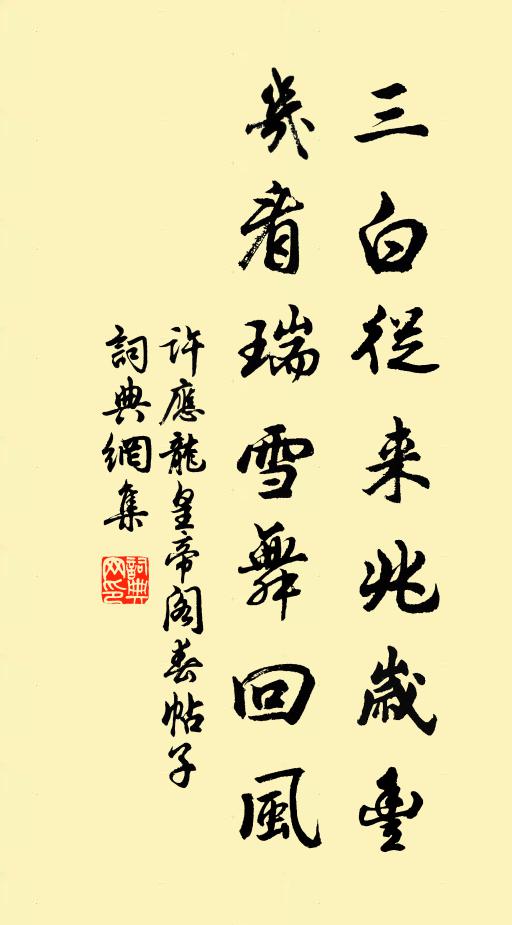 三白從来兆歲豐
幾看瑞雪舞回風
許應龍皇帝閣春帖子
詞典網集
詞典網印